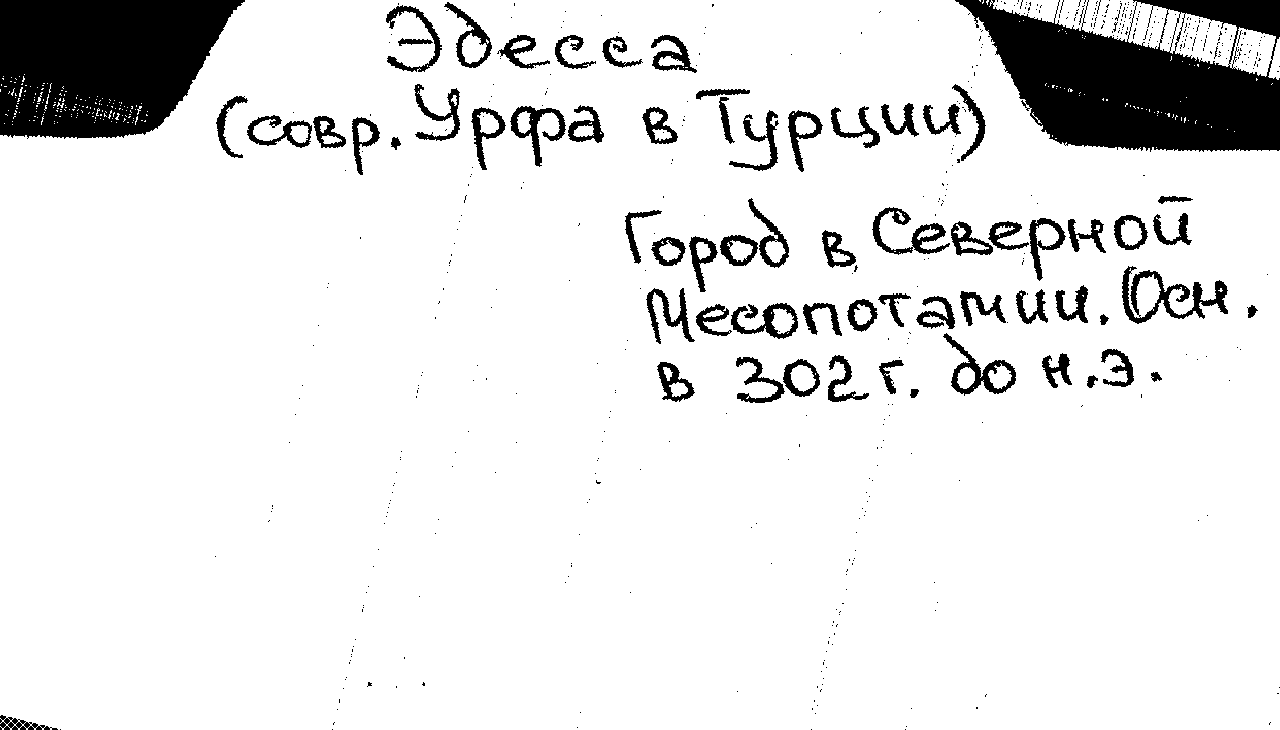 Эдесса
(совр. Урфа в Турции)
Город в Северной
Месопотамии. Осн.
в 302 г. до н.э.